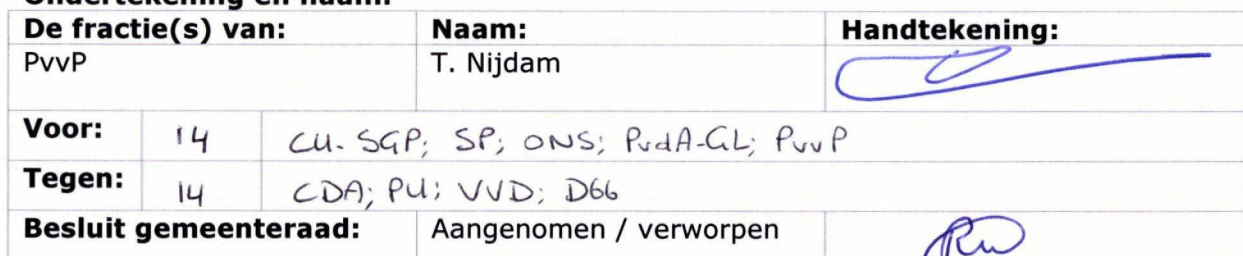 De fractie(s) van: Naam: Handtekening:
PvvP T. Nijdam
Voor: 14 CU-SGP; SP; ONS; PvdA-GL; PvvP
Tegen: 14 CDA; PU; VVD; D66
Besluit gemeenteraad: Aangenomen / verworpen